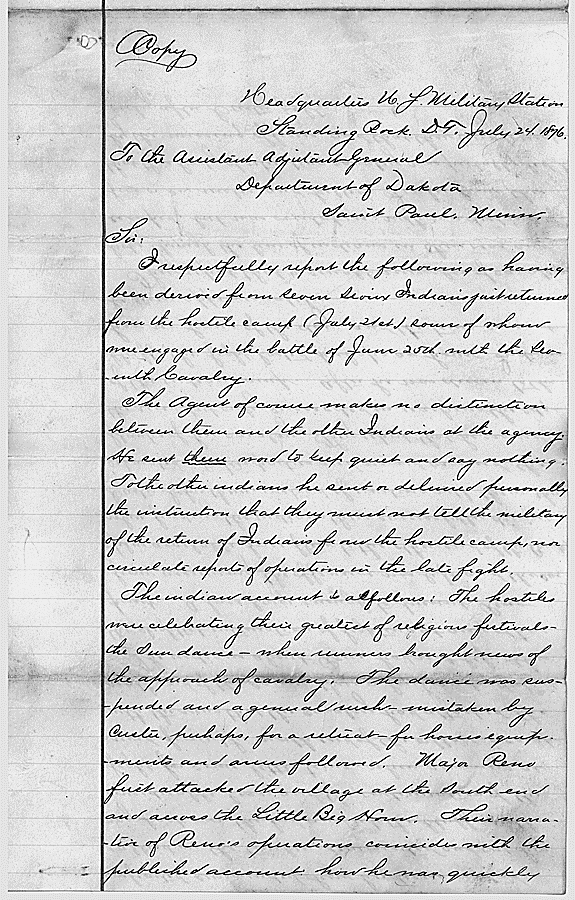 Copy
Headquarters U S Military Station
Standing Rock. D.T. July 24. 1876.
To the Assistant Adjutant General
Department of Dakota
Saint Paul. Minn.
Sir:
I respectfully report the following as having
been derived from seven Sioux Indians just returned
from the hostile camp (July 21st) some of whom
were engaged in the battle of June 25th with the Sev-
-enth Cavalry.
The Agent of course makes no distinction
between them and the other Indians at the agency.
He sent them word to keep quiet and say nothing.
To the other indians he sent or delivered personally
the instruction that they must not tell the military
of the return of Indians from the hostile camp, nor
circulate reports of operations in the late fight.
The indian account is as follows: The hostiles
were celebrating their greatest of religious festivals-
the sun dance - when runners brought news of
the approach of cavalry. The dance was sus-
-pended and a general rush - mistaken by
Custer, perhaps, for a retreat - for horses equip-
-ments and arms followed. Major Reno
first attacked the village at the South end
and across the Little Big Horn. Their narra-
-tive of Reno's operations coincides with the
published account how he was quickly